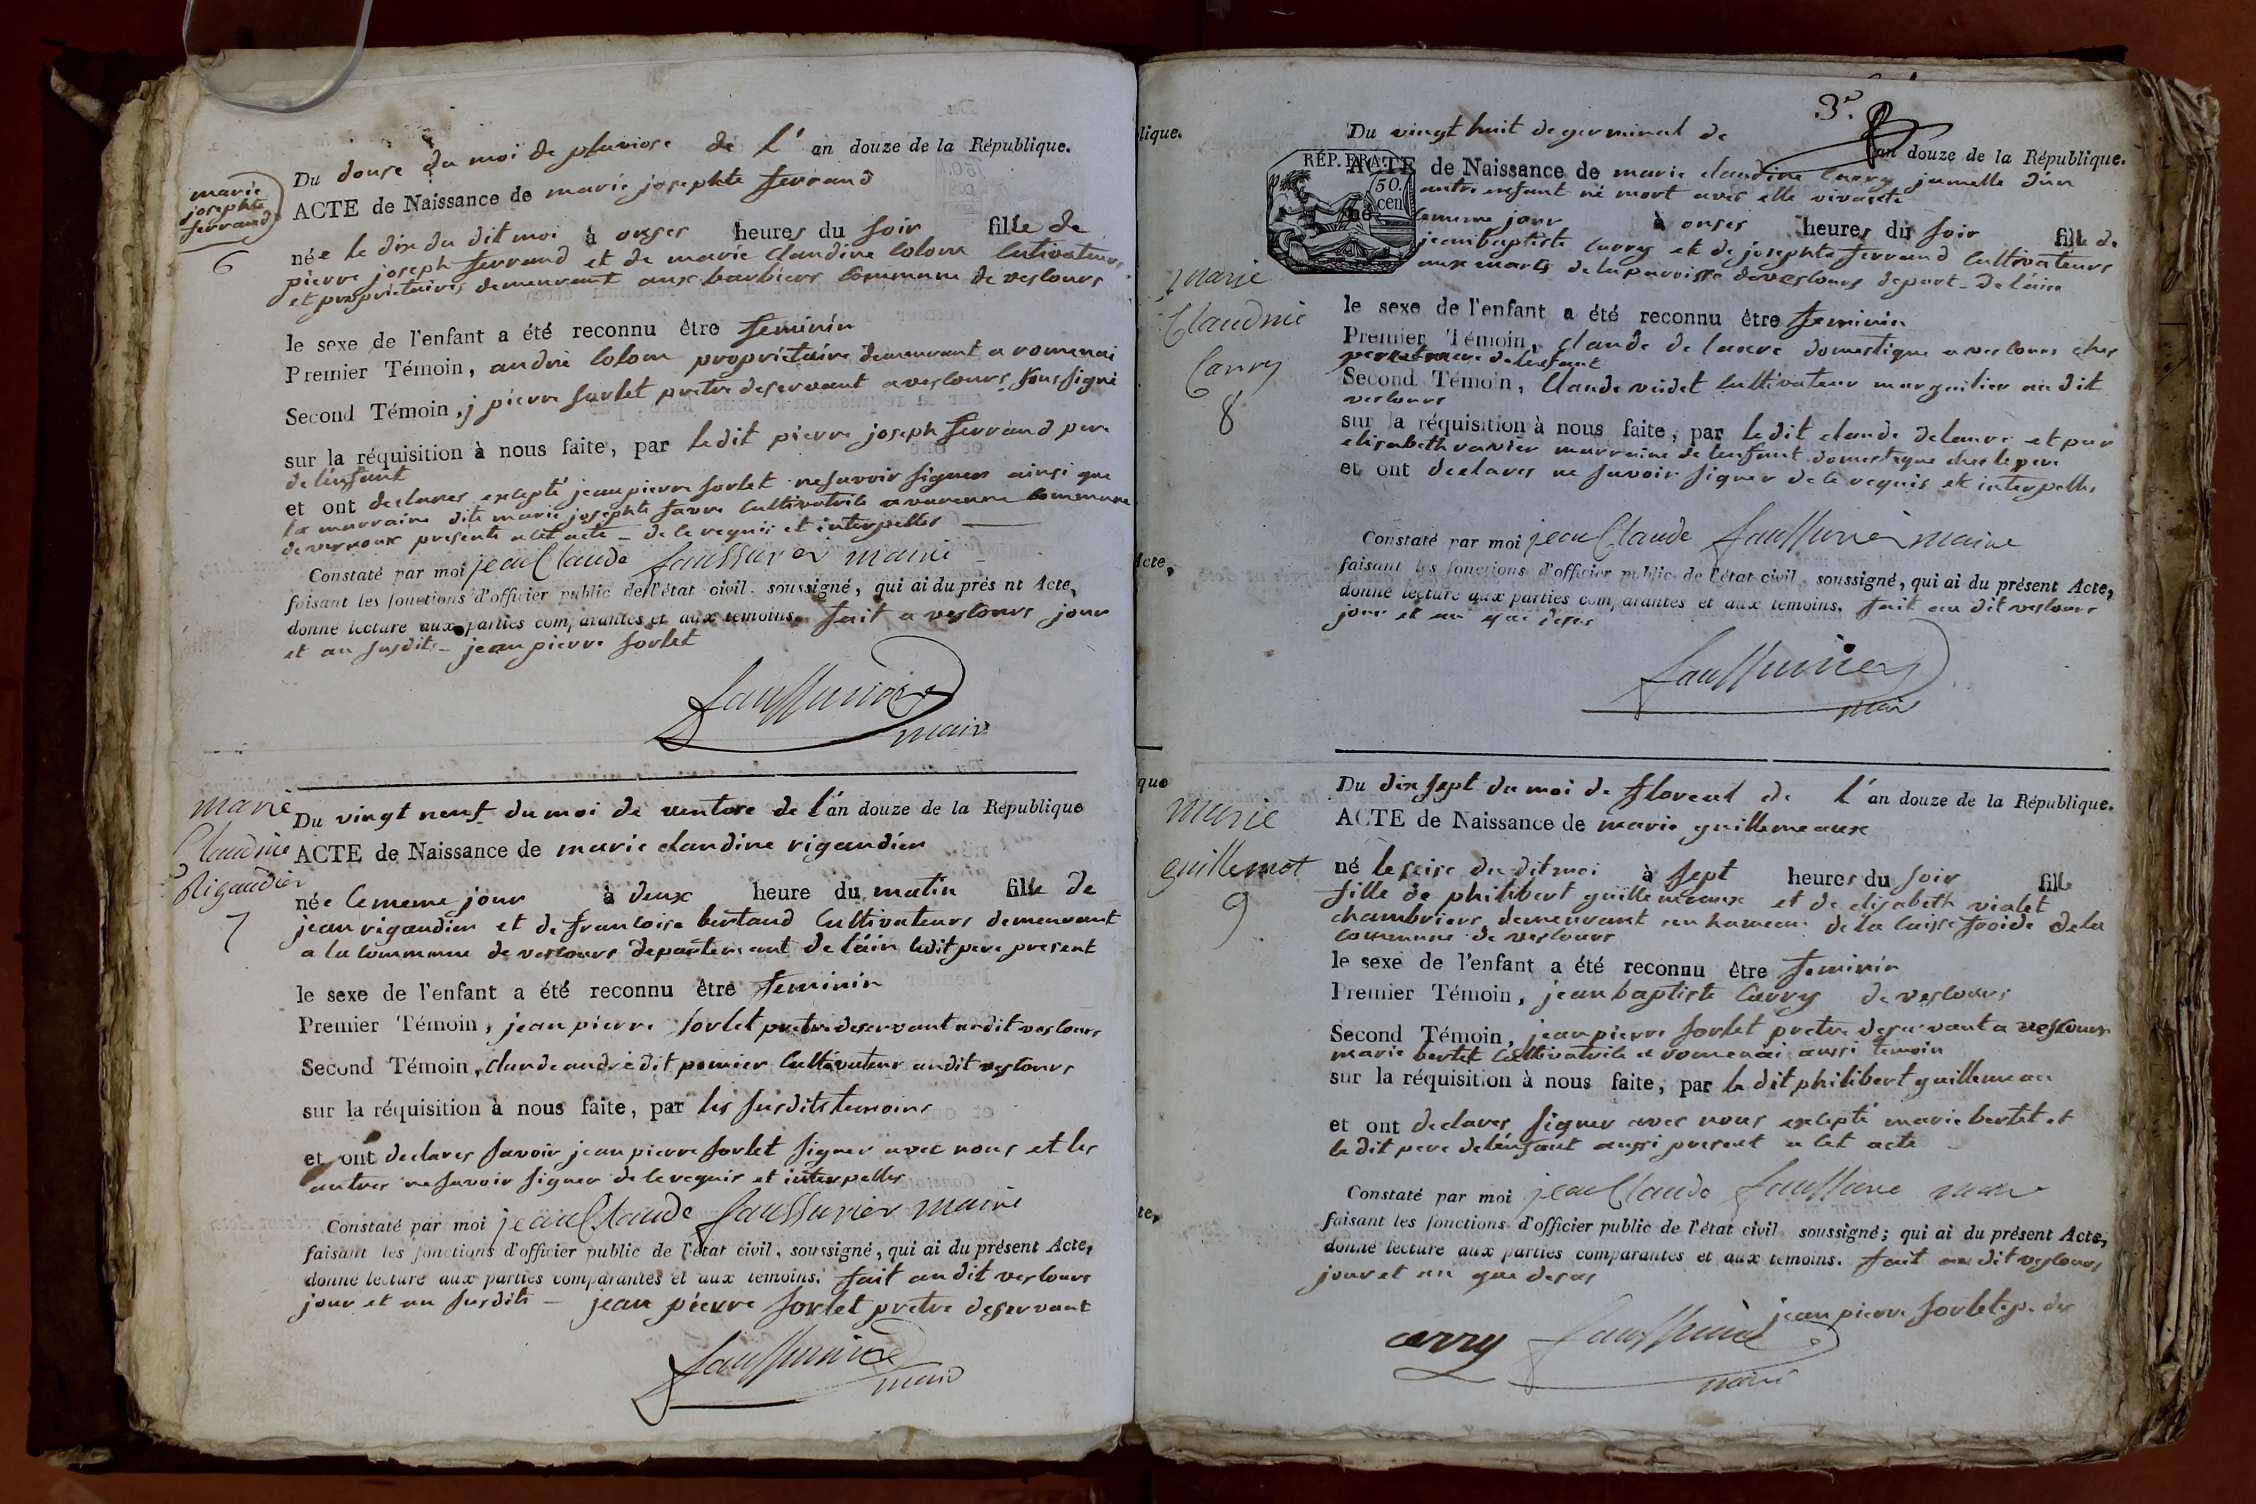 marie
josephte
ferrand
6
Du douse du moi de pluviose de L' an douze de la République.
ACTE de Naissance de marie josephte ferrand
née le dix du dit moi à onses heures du soir fille de
pierre joseph ferrand et de marie Claudine Colom Cultivateurs
et propriétaires demeurant aux barbiers Commune de vescours
le sexe de l'enfant a été reconnu être feminin
Premier Témoin, andré Colom propriétaire demeurant a romenai
Second Témoin, j pierre sorlet pretre deservant a vescours soussigné
sur la réquisition à nous faite, par ledit pierre joseph ferrand pere
de lenfant
et ont declares excepté jean pierre sorlet ne savoir signer ainsi que
la marraine dite marie josephte favre Cultivatrile a varenne Commune
de vernoux presente a cet acte - de le requis et interpelles
Constaté par moi jean Claude saussurier maire
faisant les fonctions d'officier public de l'état civil, soussigné, qui ai du prés nt Acte,
donné lecture aux parties comparantes et aux témoins. fait a vescours jour
et an susdits - jean pierre sorlet
saussurier
maire
marie
Claudine
Rigaudier
7
Du vingt neuf du moi de ventose de L'an douze de la République
ACTE de Naissance de marie claudine rigaudier
née le meme jour à deux heure du matin fille de
jean rigaudier et de francoise bertaud Cultivateurs demeurant
a la Commune de vescours departement de l'ain ledit pere present
le sexe de l'enfant a été reconnu être feminin
Premier Témoin, jean pierre sorlet pretre deservant audit vescours
Second Témoin, claude andré dit pomier Cultivateur audit vescours
sur la réquisition à nous faite, par les susdits temoins
et ont declares savoir jean pierre sorlet signer avec nous et les
autres ne savoir signer de le requis et interpelles
Constaté par moi jean Claude saussurier maire
faisant les fonctions d'officier public de l'état civil, soussigné, qui ai du présent Acte,
donné lecture aux parties comparantes et aux témoins. fait au dit vescours
jour et an susdits - jean pierre sorlet pretre deservant
saussurier
maire
lique.
Acte,
que
te,
3e.
Du vingt huit de germinal de
an douze de la République.
RÉP. FRA.
50.
cen
ACTE de Naissance de marie claudine Carry jumelle d'un
autre enfant né mort avec elle vivante
né le meme jour à onses heures du soir fille de
jean baptiste Carry et de josephte ferrand Cultivateurs
aux marts de la paroisse de vescours depart - de l'ain
marie
Claudine
Carry
8
le sexe de l'enfant a été reconnu être feminin
Premier Témoin, claude delaure domestique a vescours ches
de lenfant
Second Témoin, Claude veidet Cultivateur marguilier au dit
vescours
sur la réquisition à nous faite, par le dit claude delaure et par
elisabeth ravier marraine de lenfant domestique ches le pere
et ont declares ne savoir signer de le requis et interpelles
Constaté par moi jean Claude saussurier maire
faisant les fonctions d'officier public de l'état civil, soussigné, qui ai du présent Acte,
donné lecture aux parties comparantes et aux témoins. fait au dit vescours
jour et an que desus
saussurier
maire
marie
guillemot
9
Du dix sept du moi de floreal de L'an douze de la République.
ACTE de Naissance de marie guillemeaux
né le seise du dit moi à sept heures du soir fille
fille de philibert guillemeaux et de elisabeth violet
chambriers demeurant en hameau de la laisse froide de la
Commune de vescours
le sexe de l'enfant a été reconnu être feminin
Premier Témoin, jean baptiste Carry de vescours
Second Témoin, jean pierre sorlet pretre deservant a vescours
marie bertet Cultivatrile a romenai aussi temoin
sur la réquisition à nous faite, par le dit philibert guillemeau
et ont declares signer avec nous excepté marie bertet et
le dit pere de lenfant aussi present a cet acte
Constaté par moi jean Claude saussurie maire
faisant les fonctions d'officier public de l'état civil soussigné; qui ai du présent Acte,
donné lecture aux parties comparantes et aux témoins. fait au dit vescours
jour et an que desus
jean pierre sorlet p. des
carry
saussurier
maire